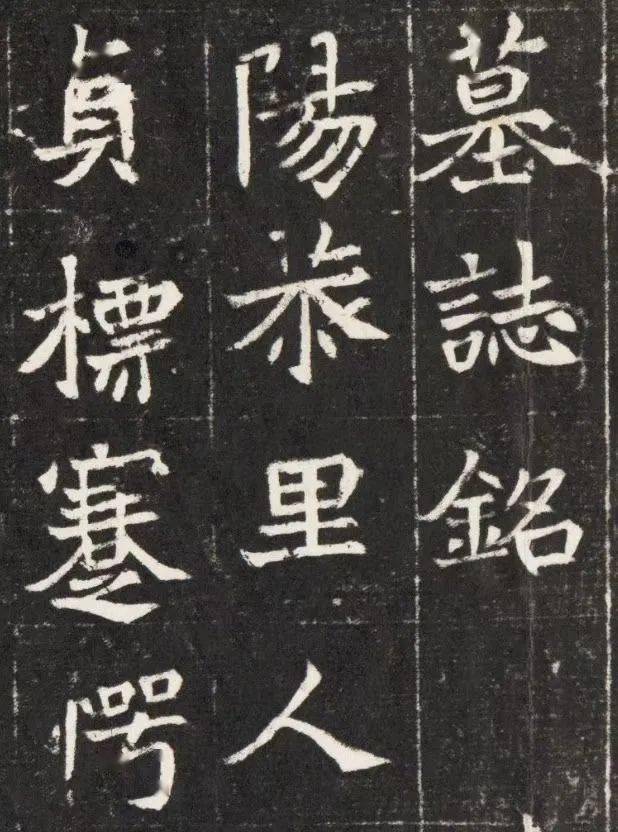 墓誌銘
陽恭里人
貞標蹇愕